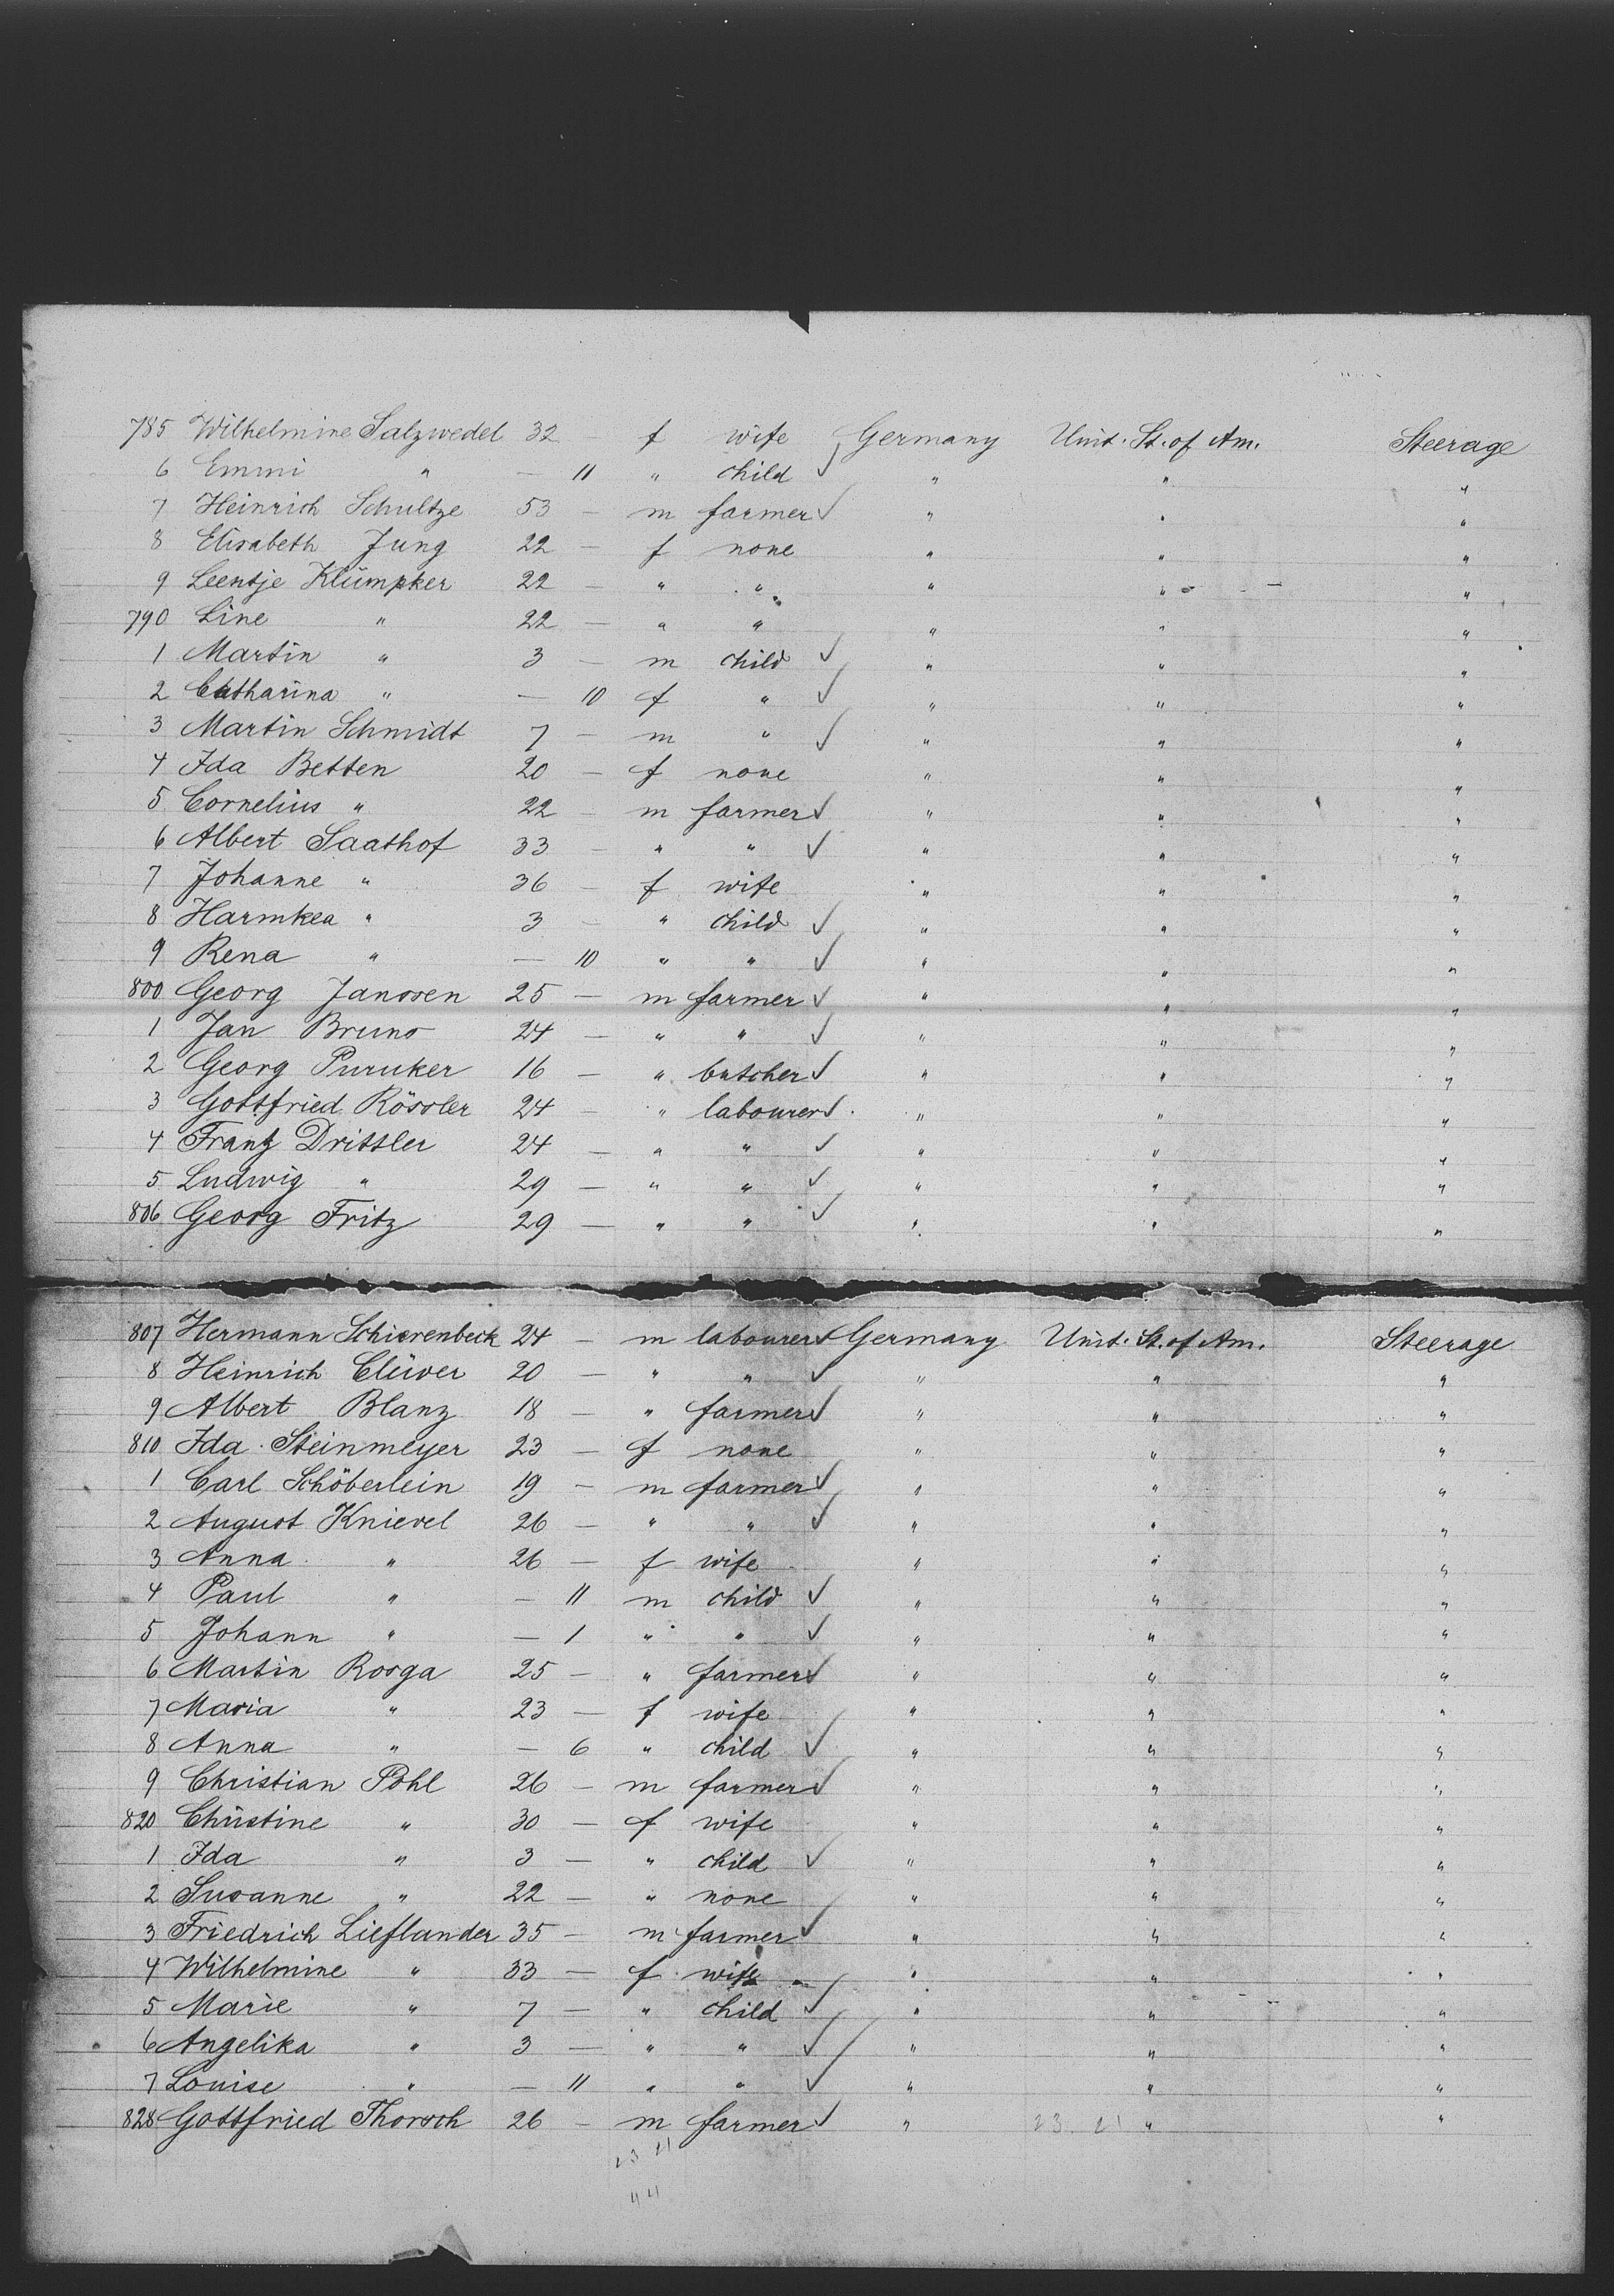 785 Wilhelmine Salzwedel 32 — f wife Germany Unit. St. of Am. Steerage
6 Emmi " — 11 " child " " "
7 Heinrich Schultze 53 — m farmer " " "
8 Elisabeth Jung 22 — f none " " "
9 Leentje Klümpker 22 — " " " " "
790 Line " 22 — " " " " "
1 Martin " 3 — m child " " "
2 Catharina " — 10 f " " " "
3 Martin Schmidt 7 — m " " " "
4 Ida Betten 20 — f none " " "
5 Cornelius " 22 — m farmer " " "
6 Albert Saathof 33 — " " " " "
7 Johanne " 36 — f wife " " "
8 Harmkea " 3 — " child " " "
9 Rena " — 10 " " " " "
800 Georg Janssen 25 — m farmer " " "
1 Jan Bruns 24 — " " " " "
2 Georg Puruker 16 — " butcher " " "
3 Gottfried Rössler 24 — " labourer " " "
4 Frantz Drittler 24 — " " " " "
5 Ludwig " 29 — " " " " "
806 Georg Fritz 29 — " " " " "
807 Hermann Schierenbeck 24 — m labourer Germany Unit. St. of Am. Steerage
8 Heinrich Clüver 20 — " " " " "
9 Albert Blanz 18 — " farmer " " "
810 Ida Steinmeyer 23 — f none " " "
1 Carl Schöberlein 19 — m farmer " " "
2 August Knievel 26 — " " " " "
3 Anna " 26 — f wife " " "
4 Paul " — 11 m child " " "
5 Johann " — 1 " " " " "
6 Martin Rosga 25 — " farmer " " "
7 Maria " 23 — f wife " " "
8 Anna " — 6 " child " " "
9 Christian Pohl 26 — m farmer " " "
820 Christine " 30 — f wife " " "
1 Ida " 3 — " child " " "
2 Susanne " 22 — " none " " "
3 Friedrich Lieflander 35 — m farmer " " "
4 Wilhelmine " 33 — f wife " " "
5 Marie " 7 — " child " " "
6 Angelika " 3 — " " " " "
7 Louise " — 11 " " " " "
828 Gottfried Thorsch 26 — m farmer " 23 21 " "
23 21
44